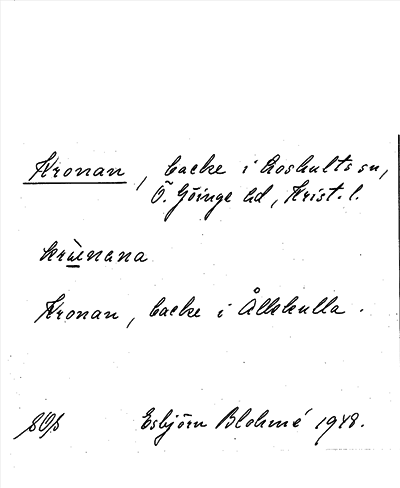 Kronan, backe i Loshults sn,
Ö. Göinge hd, Krist. l.
Kronan, backe i Ållskulla.
Esbjörn Blohmé 1948.